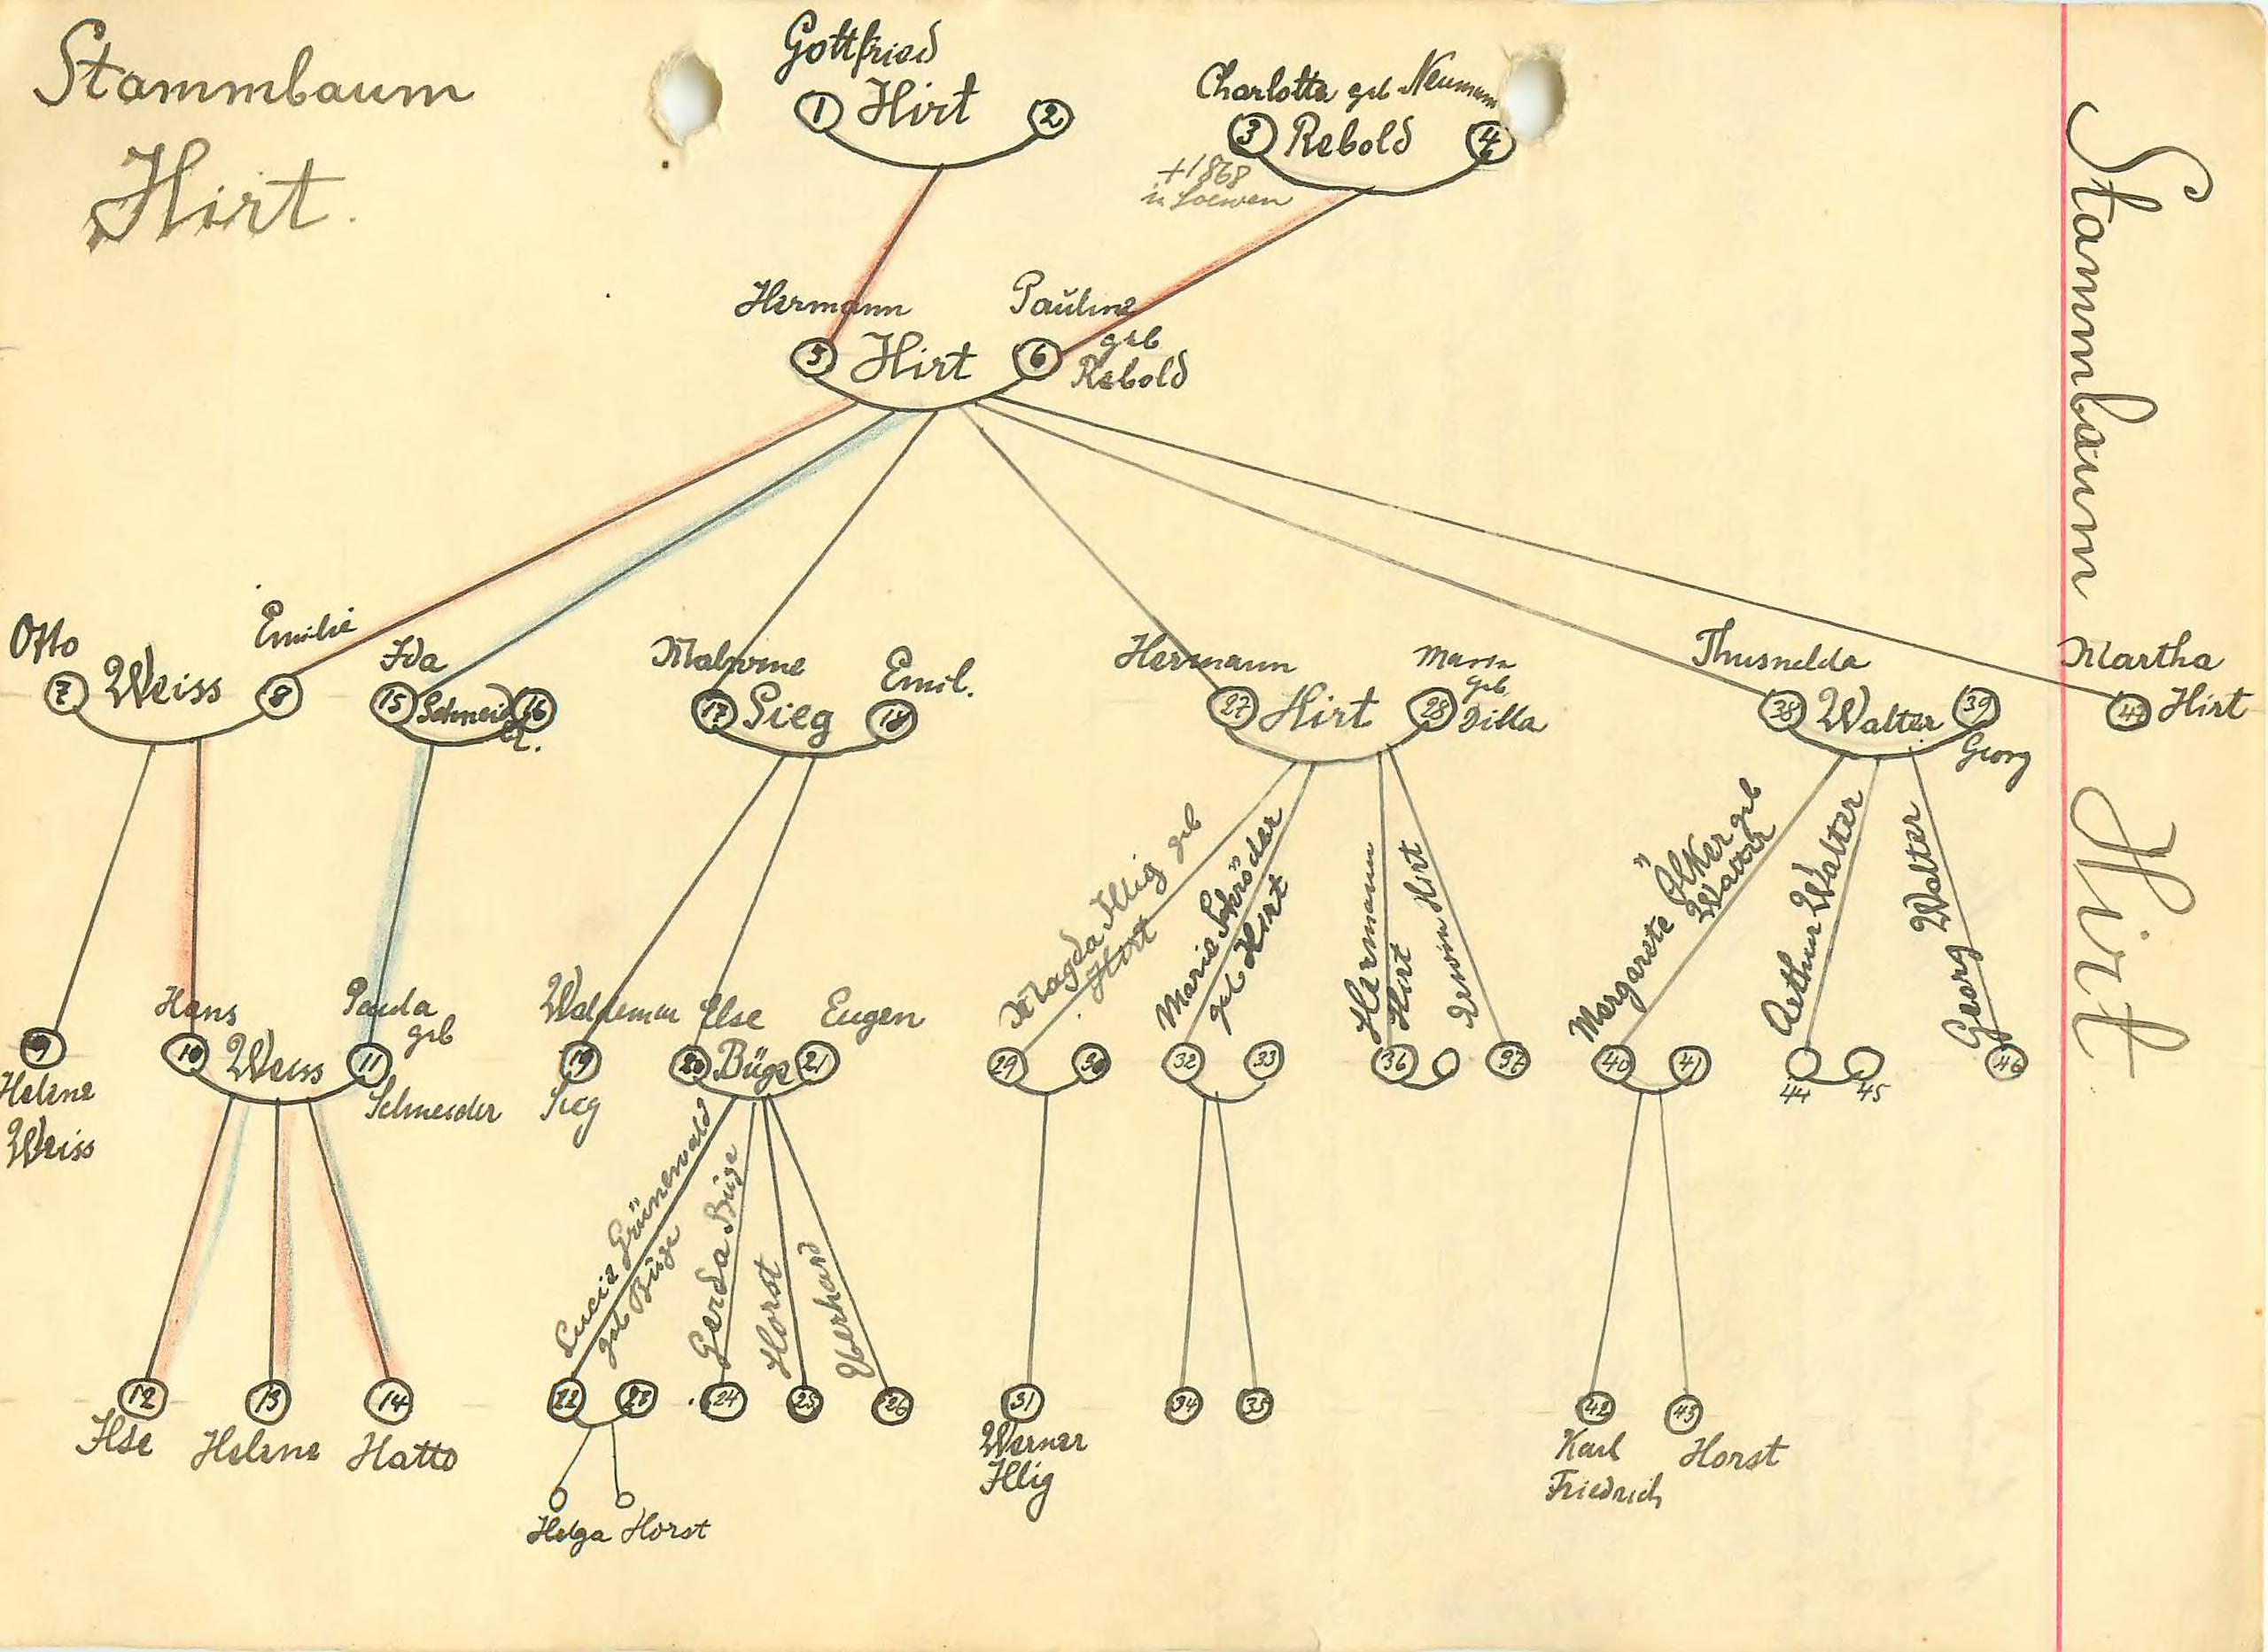 Stammbaum
Hirt.
Gottfried
1 Hirt 2
Charlotta geb Neumann
3 Rebold 4
+1868
in Loewen
Hermann Pauline
5 Hirt 6 geb
Rebold
Otto Emilie
7 Weiss 8
Ida
15 Schneid 16
er.
Emil.
17 Sieg 18
Hermann Maria
geb.
27 Hirt 28 Dilla
Thusnelda
38 Walter 39
Georg
Martha
Hirt
Hans Paula
geb
9 10 Weiss 11
Helene
Weiss
Schneider
Waldemar Else Eugen
19 20 Büge 21
Sieg
Magda Illig geb
Hirt
29 30
Marie Schröder
geb Hirt
32 33
Hermann
Hirt
36
Erwin Hirt
37
Margarete Ölker geb
Walter
40 41
Arthur Walter
44 45
Georg Walter
46
12 13 14
Ilse Helene Hatto
Lucie Grünewald
geb Büge
Gerda Büge
Horst
Eberhard
22 23 24 25 26
Helga Horst
31
Werner
Illig
34 35
42 43
Karl
Friedrich
Horst
Stammbaum Hirt